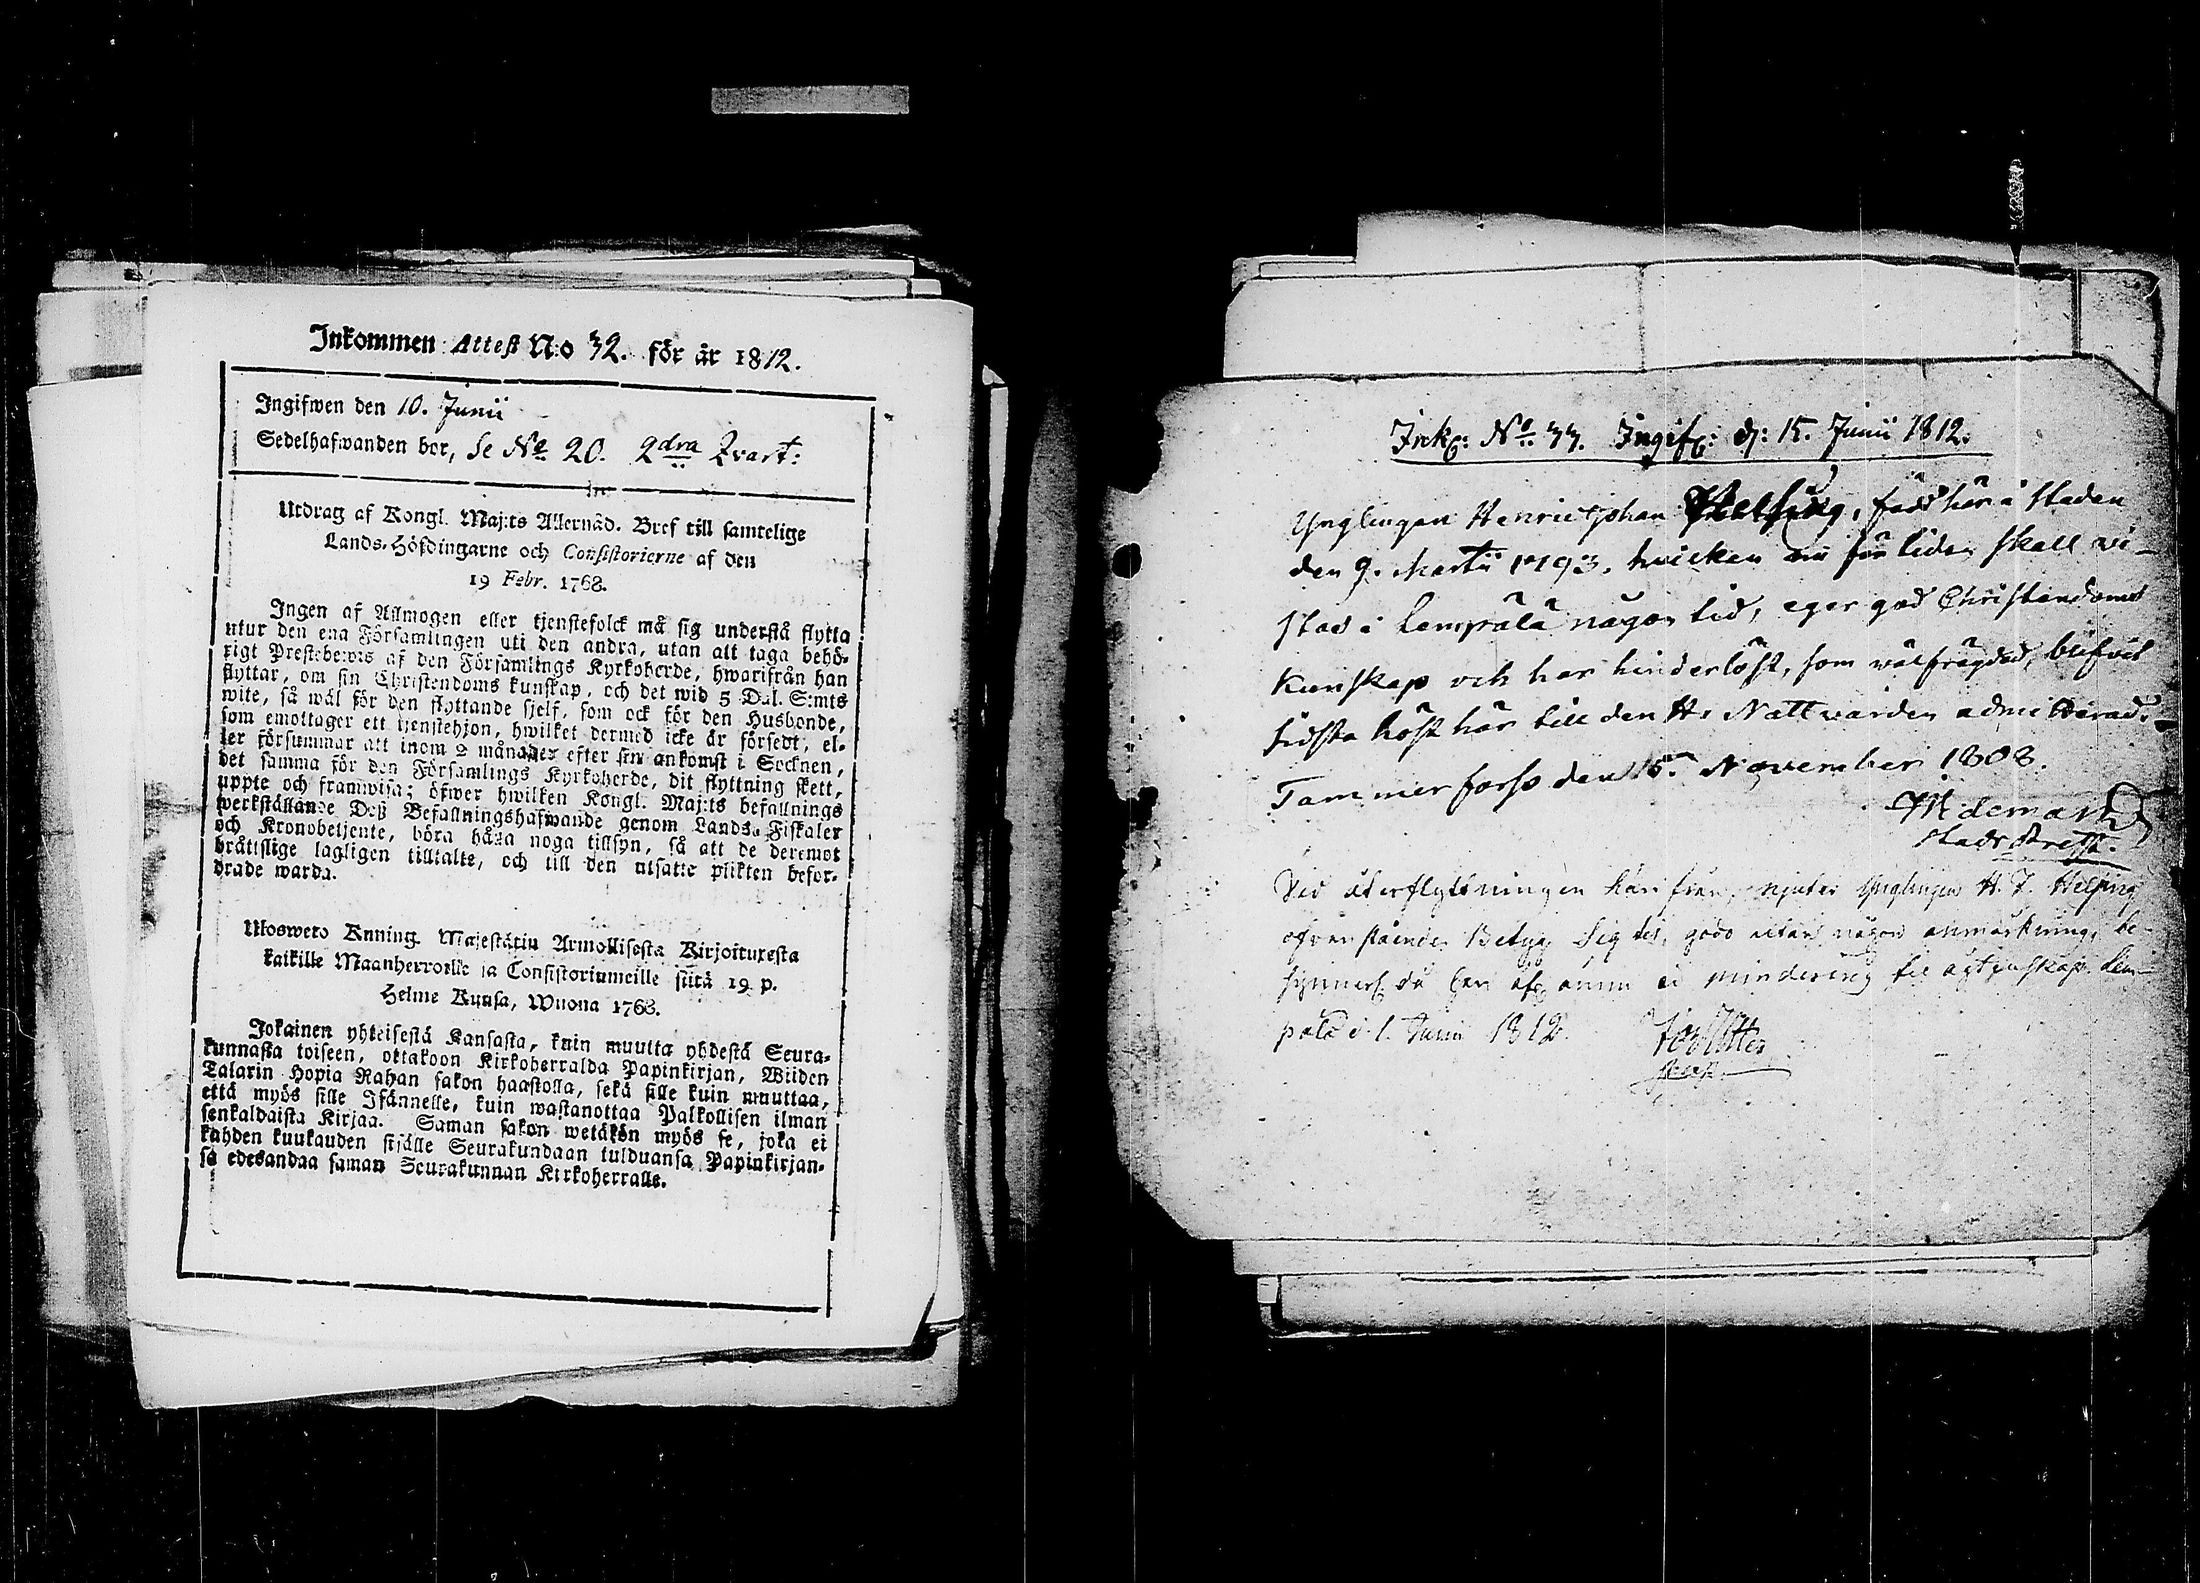 Inkommen Attest N:o 32. för år 1812.
Ingifwen den 10. Junii
Sedelhafwanden bor, se No 20. 2dra Qvart:
Utdrag af Kongl. Maj:ts Allernåd. Bref till samtelige
Lands-Höfdingarne och Consistorierne af den
19 Febr. 1768.
Ingen af Allmogen eller tjenstefolck må sig understå flytta
utur den ena Församlingen uti den andra, utan att taga behö-
rigt Prestebewis af den Församlings Kyrkoherde, hwarifrån han
flyttar, om sin Christendoms kunskap, och det wid 5 Dal. S:mts
wite, så wäl för den flyttande sjelf, som ock för den Husbonde,
som emottager ett tjenstehjon, hwilket dermed icke är försedt, el-
ler försummar att inom 2 månader efter sin ankomst i Socknen,
det samma för den Församlings Kyrkoherde, dit flyttning skett,
uppte och framwisa; öfwer hwilken Kongl. Maj:ts befallnings
werkställande Deß Befallningshafwande genom Lands-Fiskaler
och Kronobetjente, böra hålla noga tillsyn, så att de deremot
bråttslige lagligen tilltalte, och till den utsatte plikten befor-
drade warda.
Ulosweto Kuning. Majestätin Armollisesta Kirjoituxesta
kaikille Maanherroille ja Consistoriumeille siitä 19 p.
Helme Kuusa, Wuona 1768.
Jokainen yhteisestä Kansasta, kuin muutta yhdestä Seura-
kunnasta toiseen, ottakoon Kirkoherralda Papinkirjan, Wiiden
Talarin Hopia Rahan sakon haastolla, sekä sille kuin muuttaa,
että myös sille Isännelle, kuin wastanottaa Palkollisen ilman
senkaldaista Kirjaa. Saman sakon wetäkön myös se, joka ei
kahden kuukauden sisälle Seurakundaan tulduansa Papinkirjan-
sa edesandaa saman Seurakunnan Kirkoherralle.
Ink: No 33. Ingif: d: 15. Junii 1812.
Ynglingen Henric Johan Helsing, född här i staden
den 9. Martii 1793, hvilken nu för tiden skall vi-
stas i Lempälä någon tid, eger god Christendoms
Kunskap och har hinderlöst, som välfrägdad, blifvit
sidsta höst här till den H. Nattvarden admitterad.
Tammerfors den 15 November 1808.
Widemark
Stads
Vid återflyttningen härifrån, njuter Ynglingen H. J. Helsing
ofvanstående Betyg sig til godo utan någon anmärkning,
 Lem-
pälä d. 1. Junii 1812.